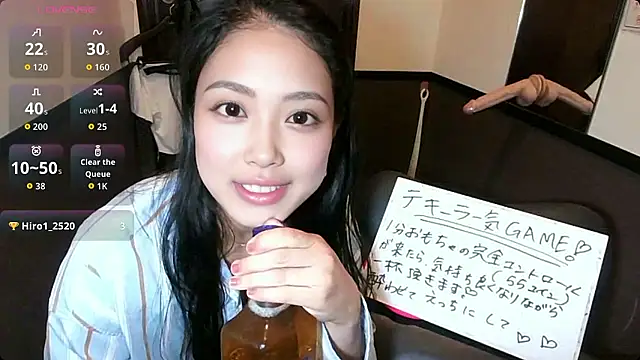 22s
120
30s
160
40s
200
Level1-4
25
10~50s
38
Clear the
Queue
1K
Hiro1_2520
3
テキーラ一気GAME!♡
1分おもちゃの完全コントロール
が来たら、(55コイン)
気持ちよくなりながら
一杯頂きます♡
酔わせてえっちにして♡♡